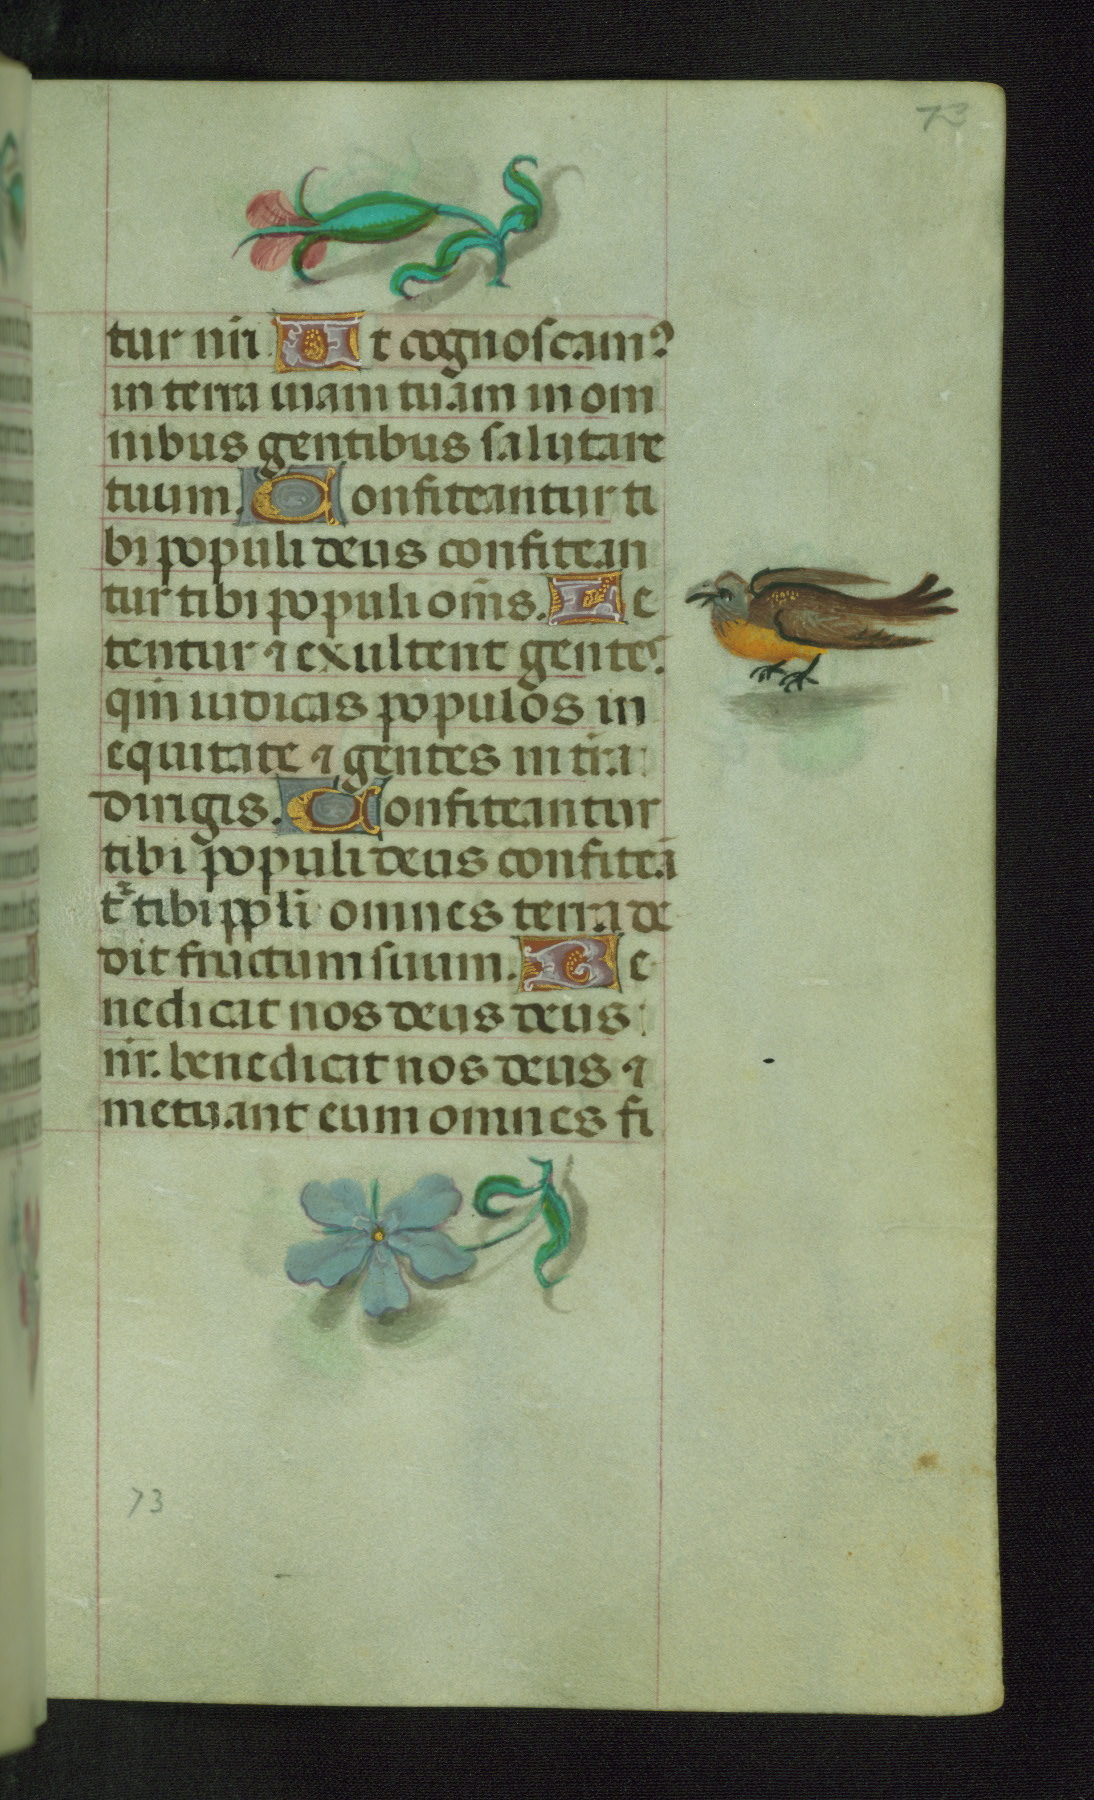 73
tur nr̄i. Ut cognoscam⁹
in terra uiam tuam in om
nibus gentibus salutare
tuum. Confiteantur ti
bi populi deus confitean
tur tibi populi om̄s. Le
tentur ⁊ exultent gentes.
qm̄ iudicas populos in
equitate ⁊ gentes in tr̄a
dirigis. Confiteantur
tibi populi deus confiteā
t᷑ tibi ppl̄i omnes terra de
dit fructum suum. Be
nedicat nos deus deus
nr̄. benedicat nos deus ⁊
metuant eum omnes fi
73